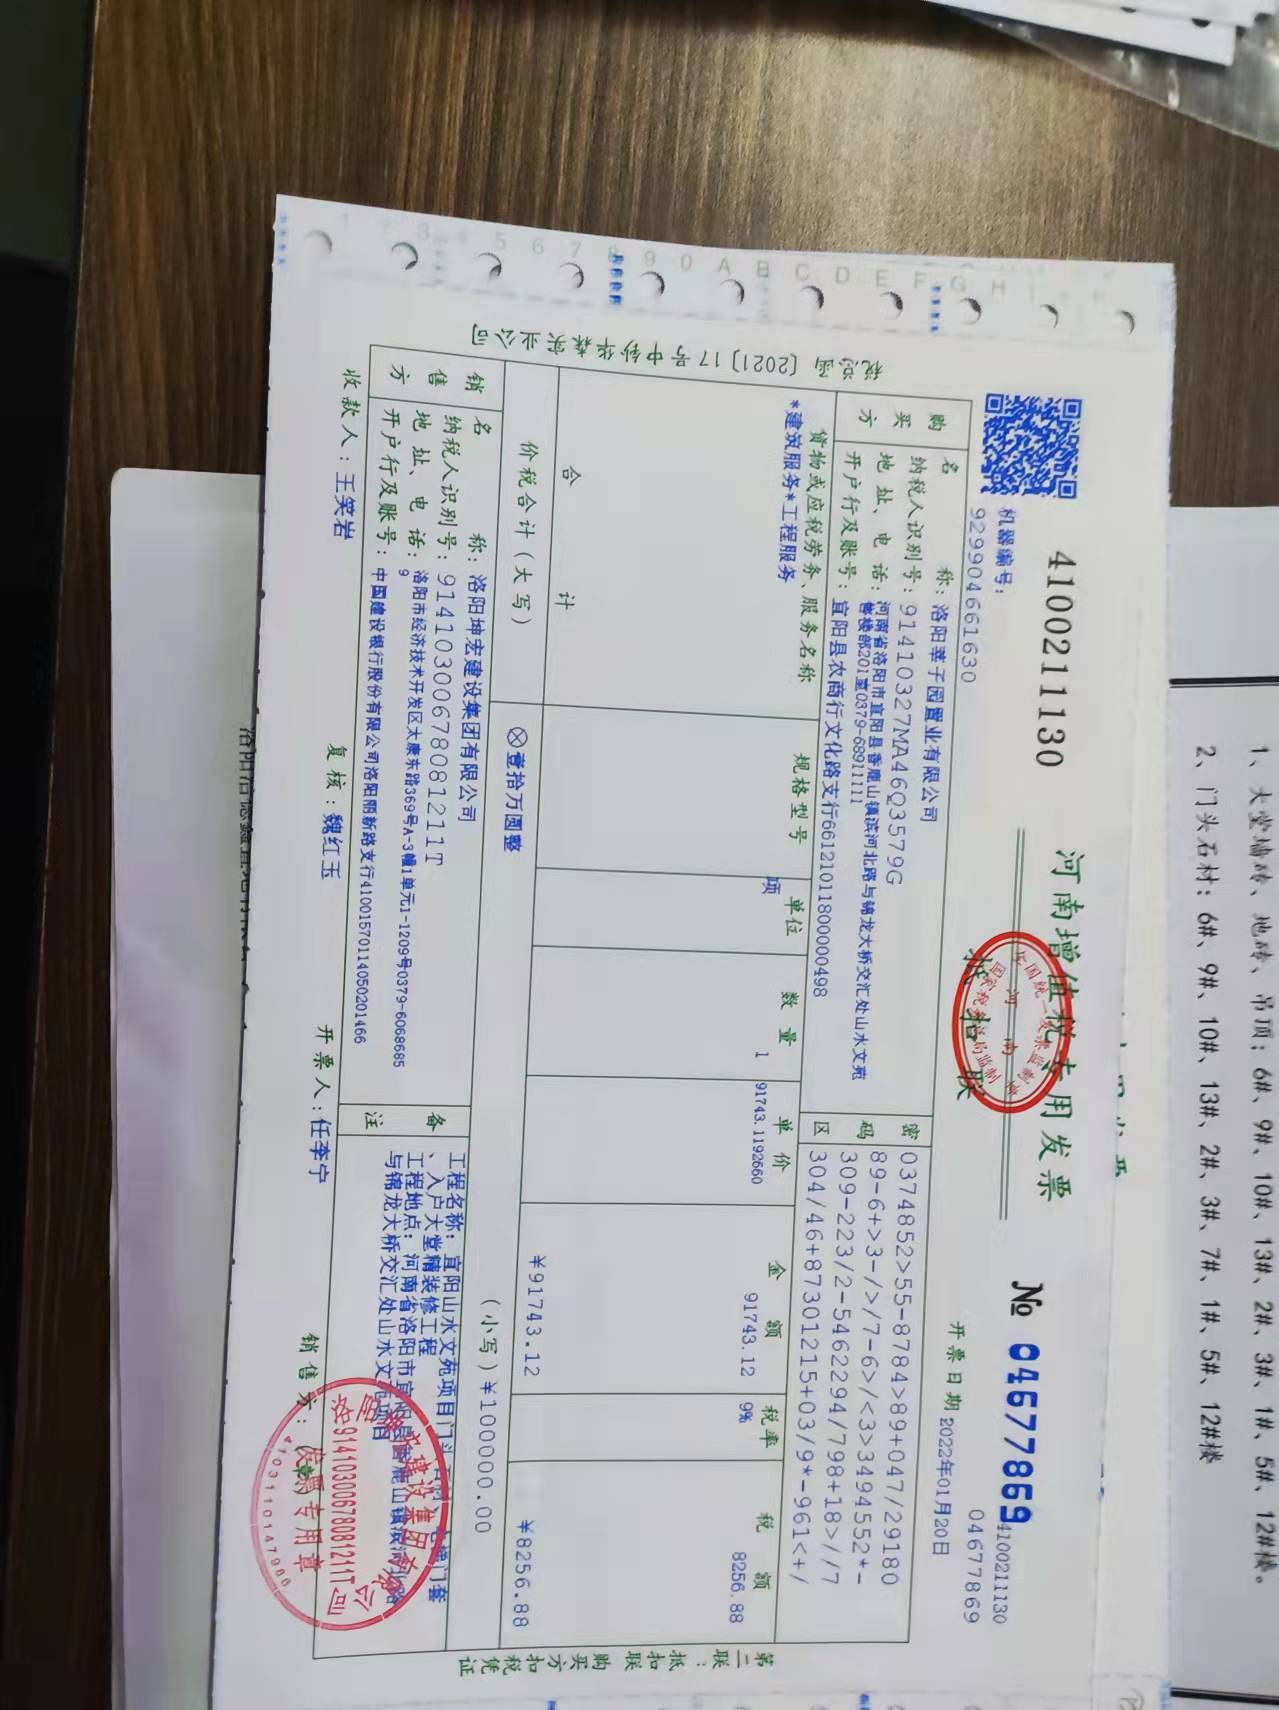 4100211130
河南增值税专用发票
№ 04677869
4100211130
04677869
抵扣联
机器编号:
929904661630
开票日期 2022年01月20日
税总函〔2021〕17号中钞华森实业公司
购买方
名 称: 洛阳莘子园置业有限公司
纳税人识别号: 91410327MA46Q3579G
地址、电话: 河南省洛阳市宜阳县香鹿山镇滨河北路与锦龙大桥交汇处山水文苑
售楼部201室0379-68911111
开户行及账号: 宜阳县农商行文化路支行66121011800000498
密码区
0374852>55-8784>89+047/29180
89-6+>3-/>/7-6>/<3>3494552*-
309-223/2-5462294/798+18>//7
304/46+87301215+03/9*-961<+/
货物或应税劳务、服务名称 规格型号 单位 数量 单价 金额 税率 税额
*建筑服务*工程服务 项 1 91743.1192660 91743.12 9% 8256.88
合 计 ¥91743.12 ¥8256.88
价税合计(大写) ⊗壹拾万圆整 (小写)¥100000.00
销售方
名 称: 洛阳坤宏建设集团有限公司
纳税人识别号: 91410300678081211T
地址、电话: 洛阳市经济技术开发区太康东路369号A-3幢1单元1-1209号0379-6068685
9
开户行及账号: 中国建设银行股份有限公司洛阳丽新路支行41001570114050201466
备注
工程名称: 宜阳山水文苑项目门头石材、电梯门套
、入户大堂精装修工程
工程地点: 河南省洛阳市宜阳县香鹿山镇滨河北路
与锦龙大桥交汇处山水文苑项目
收款人: 王笑岩 复核: 魏红玉 开票人: 任李宁 销售方: (章)
91410300678081211T
发票专用章
4103110147986
第二联: 抵扣联 购买方扣税凭证
1、大堂墙砖、地砖、吊顶: 6#、9#、10#、13#、2#、3#、1#、5#、12#楼。
2、门头石材: 6#、9#、10#、13#、2#、3#、7#、1#、5#、12#楼